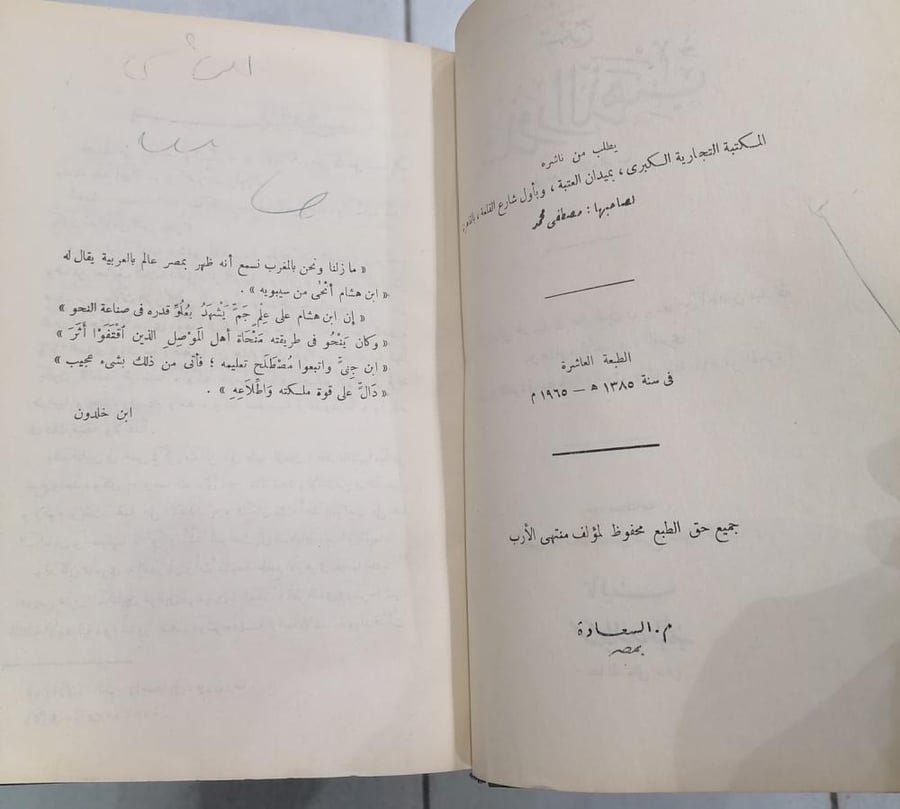 يطلب من ناشره
المكتبة التجارية الكبرى ، بميدان العتبة ، وبأول شارع القلعة ، بالقاهرة
لصاحبها : مصطفى محمد
الطبعة العاشرة
فى سنة ١٣٨٥ هـ — ١٩٦٥ م
جميع حق الطبع محفوظ لمؤلف منتهى الأرب
م . السعادة
بمصر
« ما زلنا ونحن بالمغرب نسمع أنه ظهر بمصر عالم بالعربية يقال له
« ابن هشام أنْحَى من سيبويه » .
« إن ابن هشام على عِلْمٍ جَمٍّ يَشْهَدُ بِعُلُوِّ قدره فى صناعة النحو »
« وكان يَنْحُو فى طريقته مَنْحَاةَ أهل المَوْصِلِ الذين اقْتَفَوْا أثَرَ »
« ابن جِنِّى واتبعوا مُصْطَلَحَ تعليمه ؛ فأتى من ذلك بشىء عجيب »
« دَالٍّ على قوة ملكته وَاطِّلَاعِهِ » .
ابن خلدون